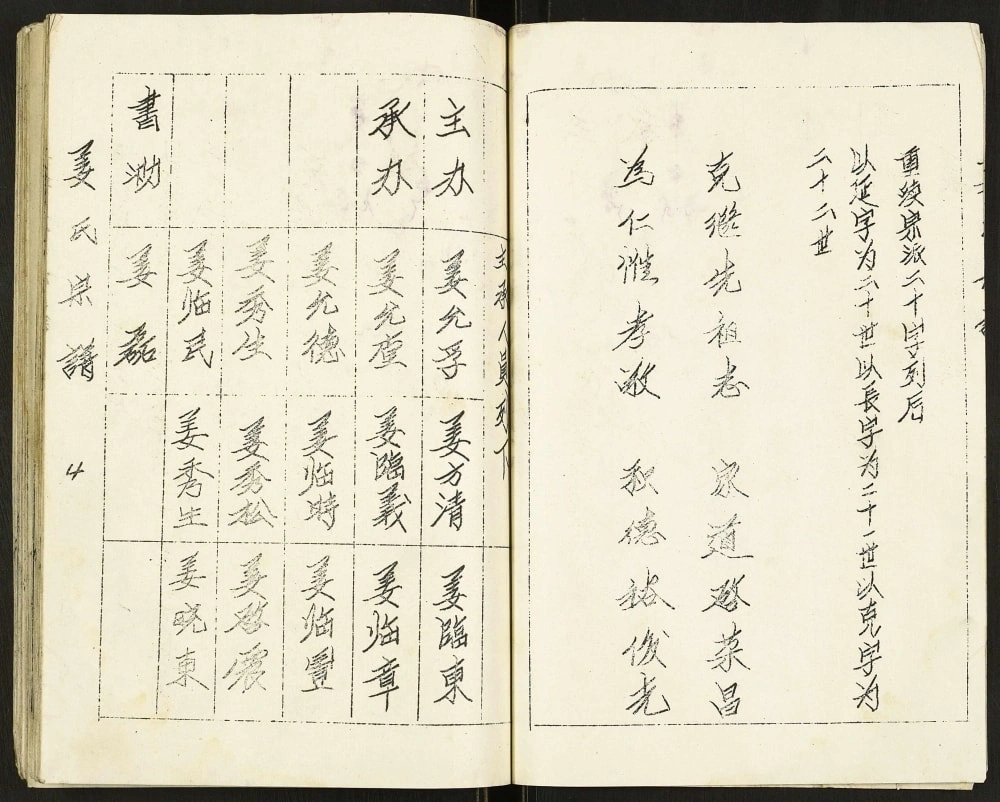 重续宗派二十字列后
以延字为二十世以長字为二十一世以克字为
二十二世
克繼先祖志 家道啓荣昌
為仁惟孝敬 積德裕俊光
主承人員列下
主办 姜允孚 姜方清 姜臨東
承办 姜允奎 姜臨義 姜临章
姜允德 姜临時 姜临豐
姜秀生 姜秀松 姜啓震
姜临民 姜秀生 姜晓東
書 姜磊
姜氏宗譜 4